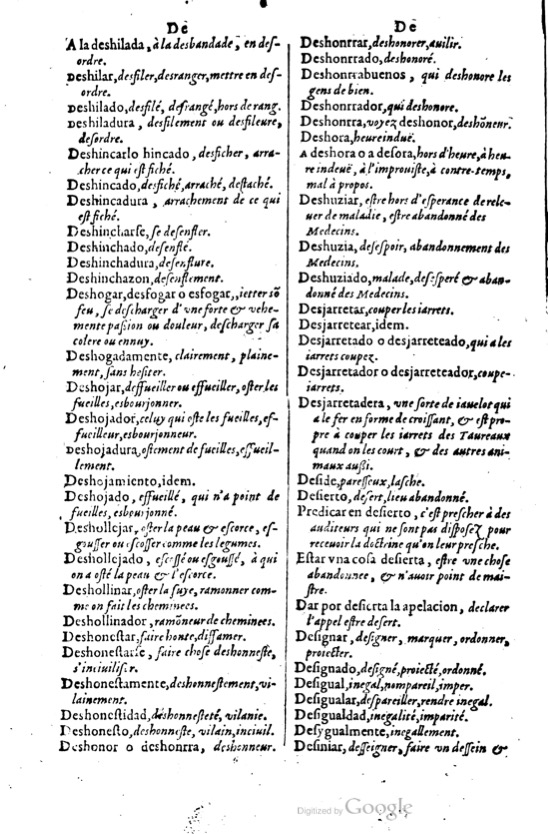 De
A la deshilada, à la desbandade, en des-
ordre.
Deshilar, desfiler, desranger, mettre en des-
ordre.
Deshilado, desfilé, desrangé, hors de rang.
Deshiladura, desfilement ou desfileure,
desordre.
Deshincarlo hincado, desficher, arra-
cher ce qui est fiché.
Deshincado, desfiché, arraché, destaché.
Deshincadura, arrachement de ce qui
est fiché.
Deshincharse, se desenfler.
Deshinchado, desenflé.
Deshinchadura, desenflure.
Deshinchazon, desenflement.
Deshogar, desfogar o esfogar, ietter sõ
feu, se descharger d'vne forte & vehe-
mente passion ou douleur, descharger sa
colere ou ennuy.
Deshogadamente, clairement, plaine-
ment, sans hesiter.
Deshojar, deffueiller ou effueiller, oster les
fueilles, esbourjonner.
Deshojador, celuy qui oste les fueilles, ef-
fucilleur, esbourjonneur.
Deshojadura, ostement de fueilles, effueil-
lement.
Deshojamiento, idem.
Deshojado, effueillé, qui n'a point de
fueilles, esbourjonné.
Deshollejar, oster la peau & escorce, es-
gousser ou escosser comme les legumes.
Deshollejado, escossé ou esgoussé, à qui
on a osté la peau & l'escorce.
Deshollinar, oster la suye, ramonner com-
me on fait les cheminees.
Deshollinador, ramõneur de cheminees.
Deshonestar, faire honte, diffamer.
Deshonestarse, faire chose deshonneste,
s'inciuiliser.
Deshonestamente, deshonnestement, vi-
lainement.
Deshonestidad, deshonnesteté, vilanie.
Deshonesto, deshonneste, vilain, inciuil.
Deshonor o deshonrra, deshonneur.
De
Deshontrar, deshonorer, auilir.
Deshontrado, deshonoré.
Deshontrabuenos, qui deshonore les
gens de bien.
Deshontrador, qui deshonore.
Deshontra, voyez deshonor, deshõneur.
Deshora, heure induë.
A deshora o a desora, hors d'heure, à heu-
re induë, à l'improuiste, à contre-temps,
mal à propos.
Deshuziar, estre hors d'esperance de rele-
uer de maladie, estre abandonné des
Medecins.
Deshuzia, desespoir, abandonnement des
Medecins.
Deshuziado, malade, desesperé & aban-
donné des Medecins.
Desjarretar, couper les iarrets.
Desjarretear, idem.
Desjarretado o desjarreteado, qui a les
iarrets coupez.
Desjarretador o desjarreteador, coupe-
iarrets.
Desjarretadera, vne sorte de iauelot qui
a le fer en forme de croissant, & est pro-
pre à couper les iarrets des Taureaux
quand on les court, & des autres ani-
maux aussi.
Deside, paresseux, lasche.
Desierto, desert, lieu abandonné.
Predicar en desierto, c'est prescher à des
auditeurs qui ne sont pas disposez pour
receuoir la doctrine qu'on leur presche.
Estar vna cosa desierta, estre vne chose
abandonnee, & n'auoir point de mai-
stre.
Dar por desierta la apelacion, declarer
l'appel estre desert.
Designar, designer, marquer, ordonner,
proiecter.
Designado, designé, proiecté, ordonné.
Desigual, inegal, nompareil, imper.
Desigualar, despareiller, rendre inegal.
Desigualdad, inegalité, imparité.
Desygualmente, inegallement.
Desiniar, desseigner, faire vn dessein &
Digitized by Google